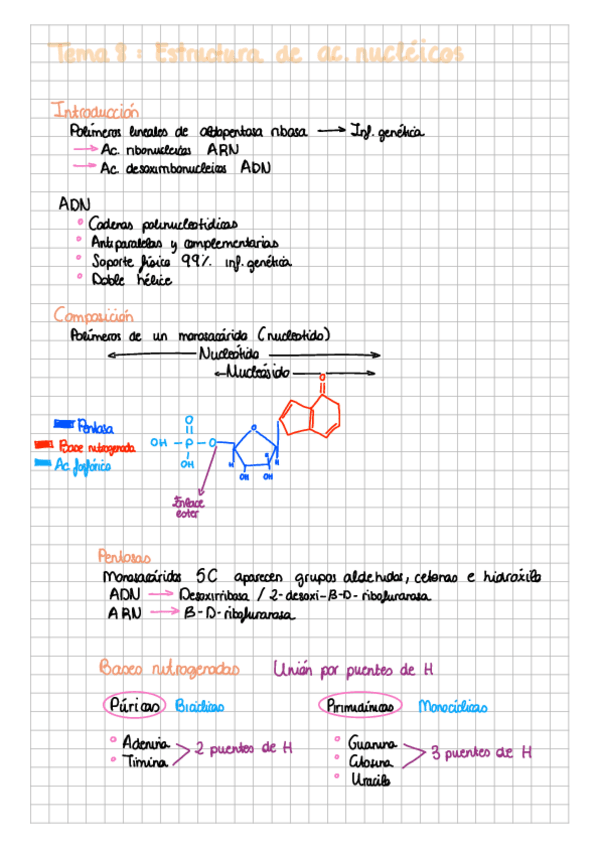 Tema 8 : Estructura de ac. nucléicos
Introducción
Polímeros lineales de aldopentosa ribosa → Inf. genética
→ Ac. ribonucleicos ARN
→ Ac. desoxirribonucleicos ADN
ADN
° Cadenas polinucleotídicas
° Antiparalelas y complementarias
° Soporte físico 99% inf. genética
° Doble hélice
Composición
Polímeros de un monosacárido (nucleótido)
Nucleótido
Nucleósido
O
Pentosa
Base nitrogenada
Ac. fosfórico
O
OH - P - O
OH
O
H
H
H
H
OH OH
Enlace
ester
Pentosas
Monosacáridos 5C aparecen grupos aldehídos, cetonas e hidroxilo
ADN → Desoxirribosa / 2-desoxi-β-D-ribofuranosa
ARN → β-D-ribofuranosa
Bases nitrogenadas Unión por puentes de H
Púricas Bicíclicas Pirimidínicas Monocíclicas
° Adenina
° Timina
2 puentes de H
° Guanina
° Citosina
° Uracilo
3 puentes de H